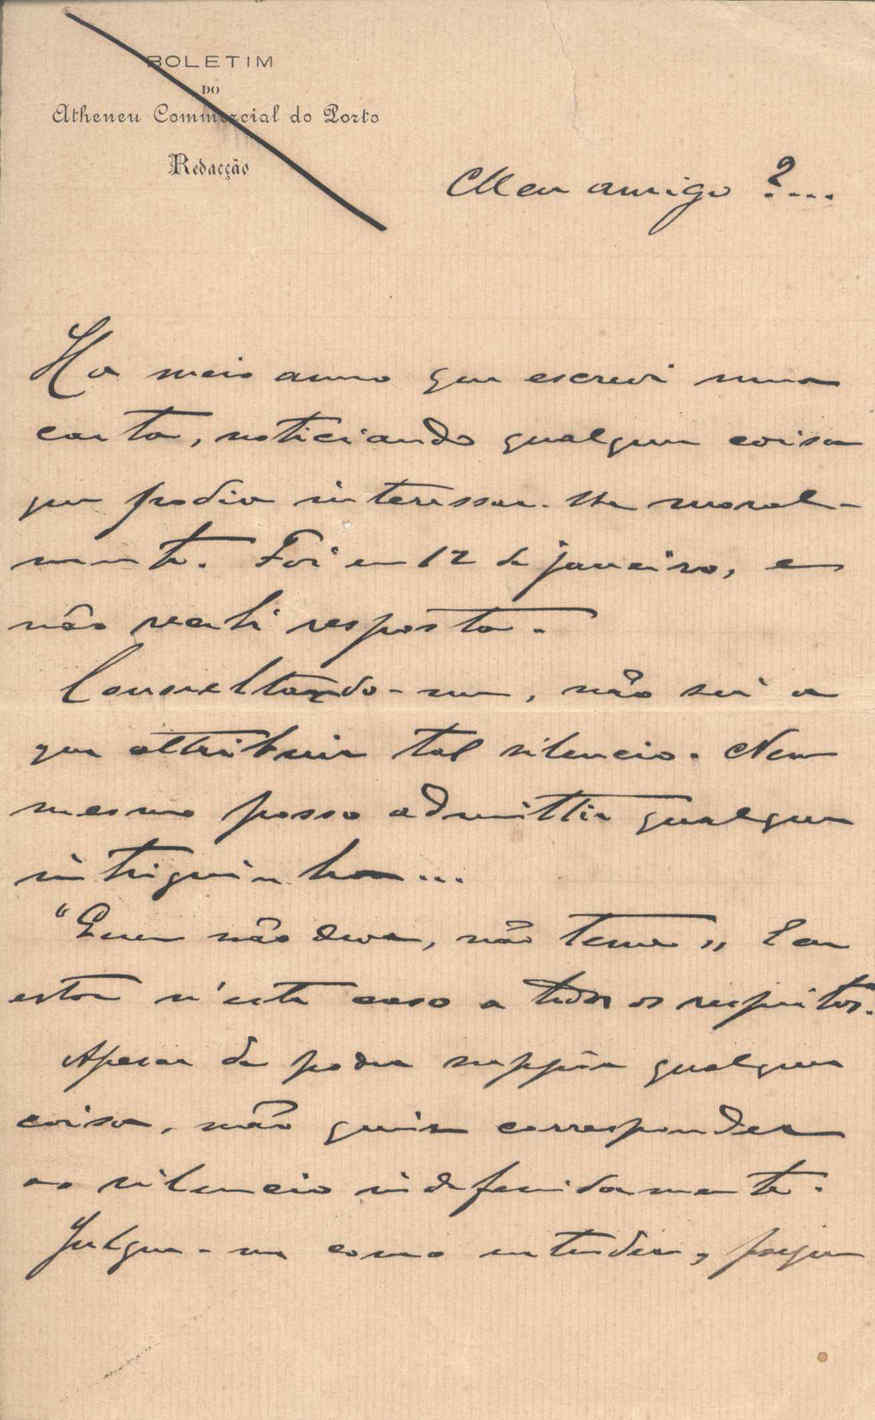 BOLETIM
DO
Atheneu Commercial do Porto
Redacção
Meu amigo ?...
Ha meio anno que escrevi uma
carta, noticiando qualquer coisa
que podia interessar-lhe moral-
mente. Foi em 12 de janeiro, e
não recebi resposta.
Consultando-me, não sei a
que attribuir tal silencio. Nem
mesmo posso admittir qualquer
intriguinha...
"Quem não deve, não teme" E eu
estou n'este caso a todos os respeitos.
Apesar de poder suppôr qualquer
coisa, não quiz corresponder
ao silencio indefenidamente.
Julgue-me como entender, faça